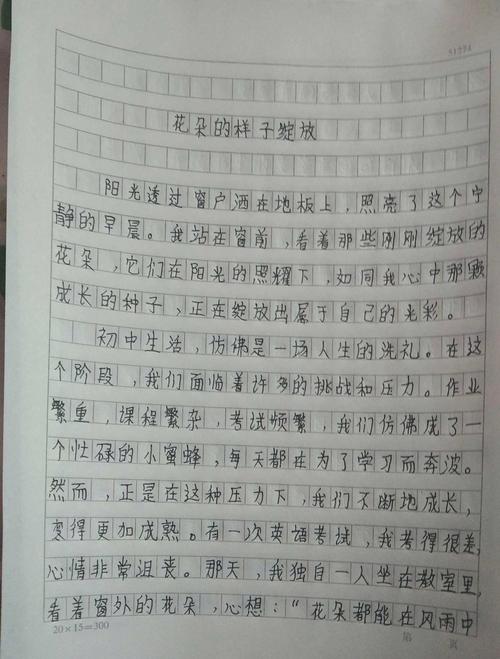 51224
花朵的样子绽放
阳光透过窗户洒在地板上，照亮了这个宁
静的早晨。我站在窗前，看着那些刚刚绽放的
花朵，它们在阳光的照耀下，如同我心中那颗
成长的种子，正在绽放出属于自己的光彩。
初中生活，仿佛是一场人生的洗礼。在这
个阶段，我们面临着许多的挑战和压力。作业
繁重，课程繁杂，考试频繁，我们仿佛成了一
个忙碌的小蜜蜂，每天都在为了学习而奔波。
然而，正是在这种压力下，我们不断地成长，
变得更加成熟。有一次英语考试，我考得很差，
心情非常沮丧。那天，我独自一人坐在教室里，
看着窗外的花朵，心想：“花朵都能在风雨中
20×15=300
第 页